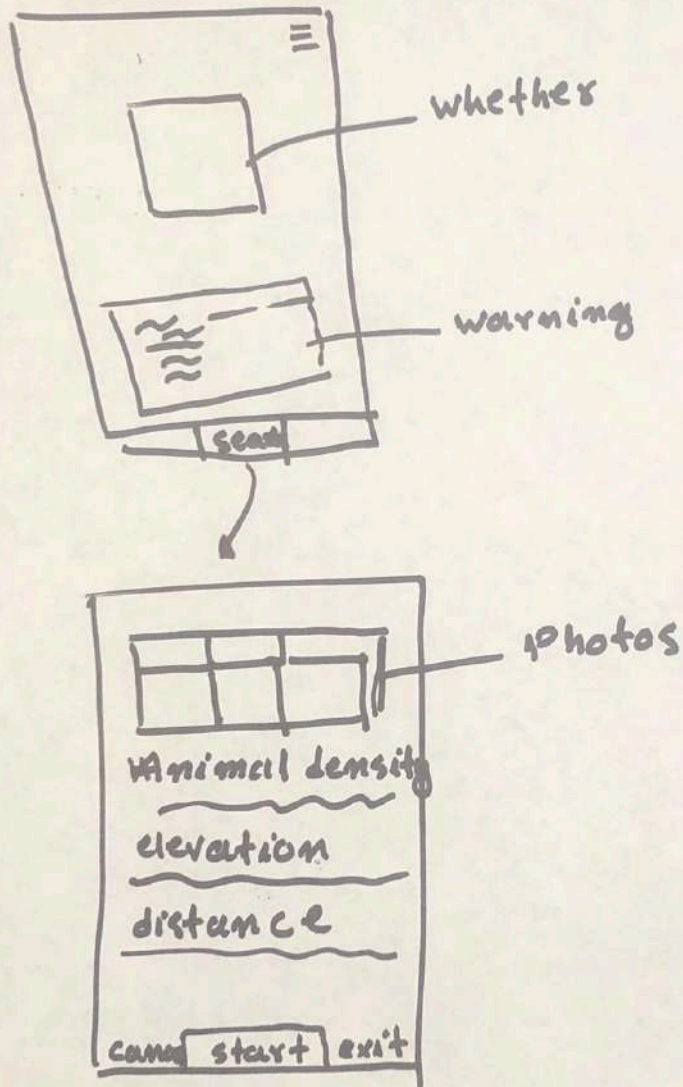 whether
warning
Photos
Animal density
elevation
distance
start exit